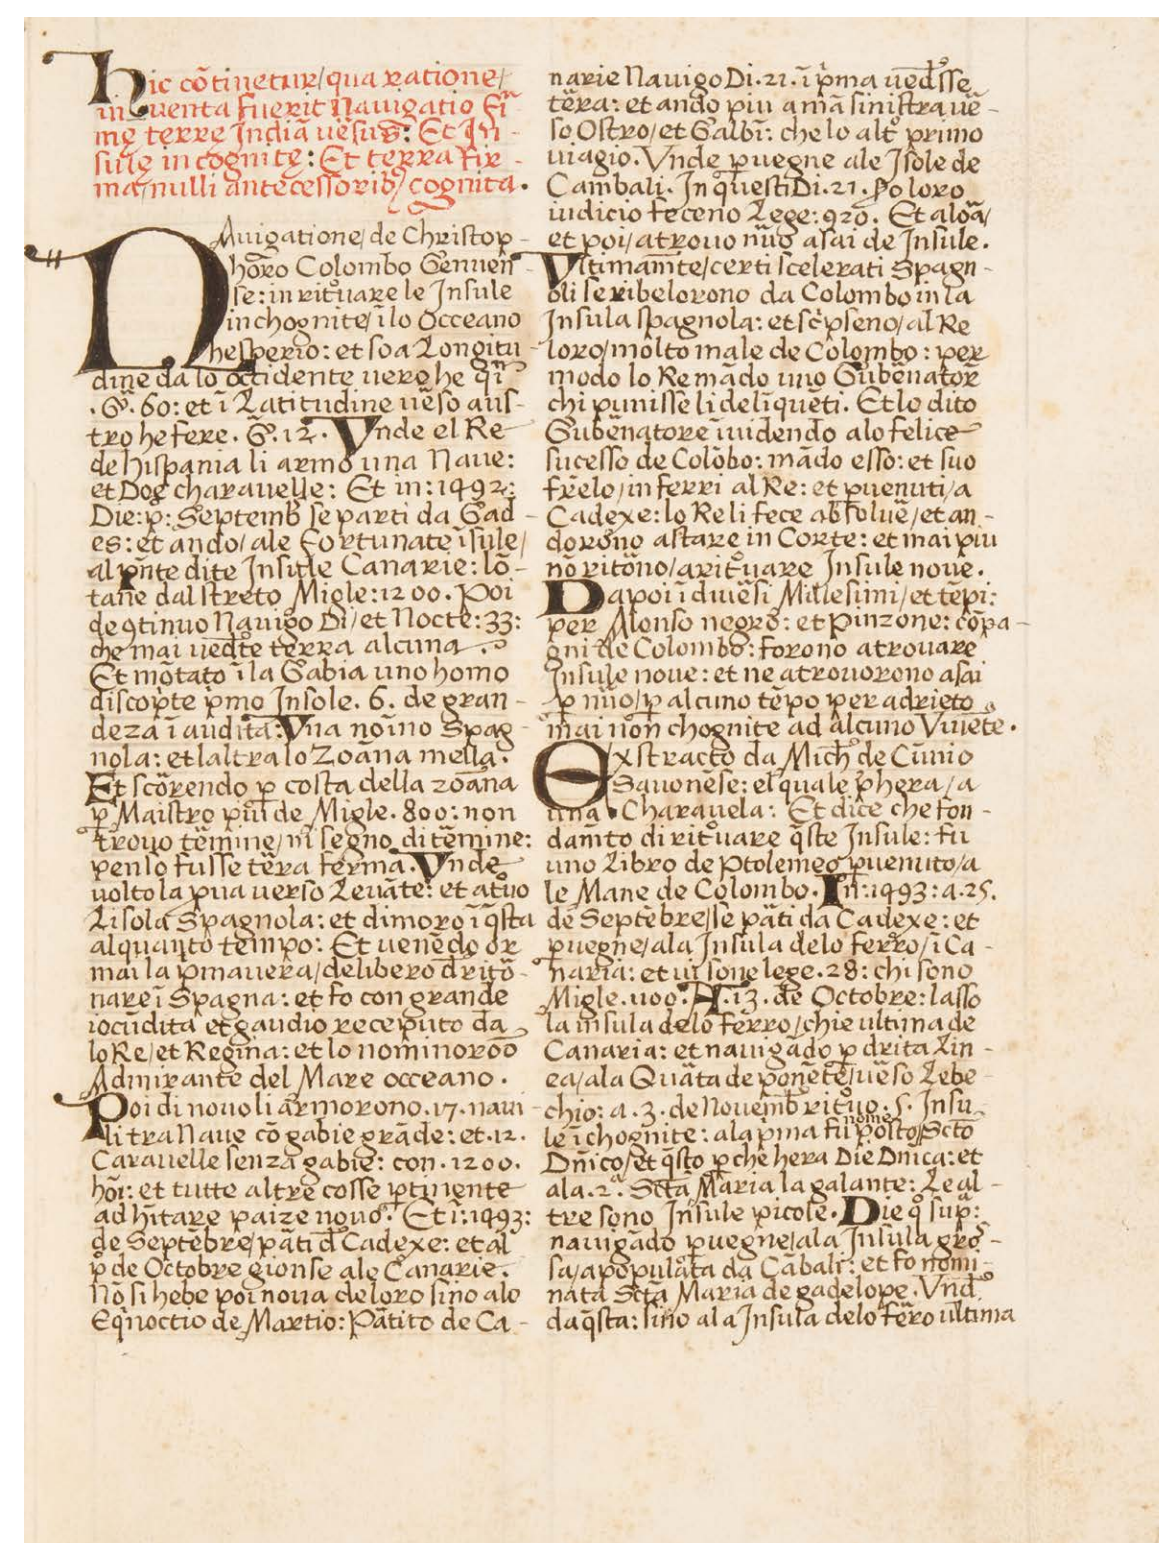 Hic cōtinetur/qua ratione/
inventa fuerit Navigatio fī
mę terre Indiā vēsus: Et In-
sule incognitę: Et terra Fir-
ma/nulli antecessorib/ cognita.
NAvigatione/de Christop-
horo Colombo Genuen-
se: in rit°vare le Insule
inchognite/ī lo Occeano
hesperio: et so a Longitu-
dine da lo occidente vero he qī
.G. 60: et ī Latitudine vēso aus-
tro he fere. G. 12. Vnde el Re
de hispania li armo una Nave:
et Doe charavelle: Et in: 1492:
Die: p: Septemb se parti da Gad-
es: et ando/ale Fortunate īsule/
al pnte dite Insule Canarie: lō-
tane dal streto Migle: 1200. Poi
de 9tinuo Navigo Di/et Nocte: 33:
che mai vedte terra alcuna.
Et mōtato ī la Gabia uno homo
discopte pmo Insole. 6. de gran-
deza ī audita: Vna noīno Spag-
nola: et laltra lo Zoāna mella.
Et scōrendo p costa della zoāna
p Maistro piu de Migle. 800: non
trovo tēmine/nī segno di tēmine:
penso fusse tēra ferma. Vnde
volto la pua verso Levāte: et at°vo
Lisola Spagnola: et dimoro ī q̄sta
alquanto tempo: Et venēdo or
mai la pmavera/delibero d ritō-
nare ī Spagna: et fo con grande
iocūdita et gaudio receputo da
lo Re/et Regina: et lo nominoro̅o
Admirante del Mare occeano.
Poi di novo li armorono. 17. navi-
li tra Nave cō gabie grāde: et. 12.
Caravelle senza gabie: con. 1200.
hōi: et tutte altre cosse ptinente
ad hītare paize novo. Et ī: 1493:
de Septēbre/pāti d Cadexe: et al
p de Octobre gionse ale Canarie.
Nō si hebe poi nova de loro sino alo
Eqnoctio de Martio: Pātito de Ca-
narie Navigo Di. 21. ī pma vedesse
tēra: et ando piu a mā sinistra vē-
so Ostro/et Galbī: che lo alt° primo
viagio. Vnde pvegne ale Isole de
Cambali. In questi Di. 21. Po loro
iudicio feceno Lege: 920. Et aloā/
et poi/atrovo nuo asai de Insule.
Vltimamte/certi scelerati Spagn-
oli se ribelorono da Colombo in la
Insula spagnola: et scpseno/al Re
loro/molto male de Colombo: per
modo lo Re mādo uno Gubēnatorē
chi punisse li delīqueti. Et lo dito
Gubēnatore īvidendo alo felice
sucesso de Colōbo: mādo esso: et suo
frēlo/in ferri al Re: et pvenuti/a
Cadexe: lo Re li fece absolvē/et an-
dorono astare in Corte: et mai piu
nō ritōno/a rit°vare Insule nove.
Dapoi ī divēsi Millesimi/et tēpi:
per Alonso negro: et Pinzone: cōpa-
gni de Colombo: forono atrovare
Insule nove: et ne atrovorono asai
p nuo/p alcuno tēpo per adrieto
mai non chognite ad alcuno Vivēte.
Exstracto da Mich° de Cūnio
Savonēse: el quale p hera/a
una Charavela: Et dice che fon-
damto di rit°vare q̄ste Insule: fu
uno Libro de Ptolemeo pvenuto/a
le Mane de Colombo. In: 1493: a. 25.
de Septēbre/se pāti da Cadexe: et
pvegne/ala Insula delo ferro/ī Ca-
naria: et vi sono lege. 28: chi sono
Migle. 1100. A. 13. de Octobre: lasso
la insula delo ferro/chi e ultima de
Canaria: et navigādo p drita Lin-
ea/ala Quāta de ponēte/vēso Lebe-
chio: a. 3. de Novemb rit°vo. 5. Insu-
le ī chognite: ala pma fu posto nome Scto
Dnīco/et q̄sto p che hera Die Dnica: et
ala. 2ª. Sctā Maria la galante: Le al-
tre sono Insule picole. Die q° supª:
navigādo pvegne/ala Insula gro-
sa/apopulata da Cābali: et fo nomi-
nata Sctā Maria de gadelope. Vnd°
da q̄sta: sino ala Insula delo fēro ultima